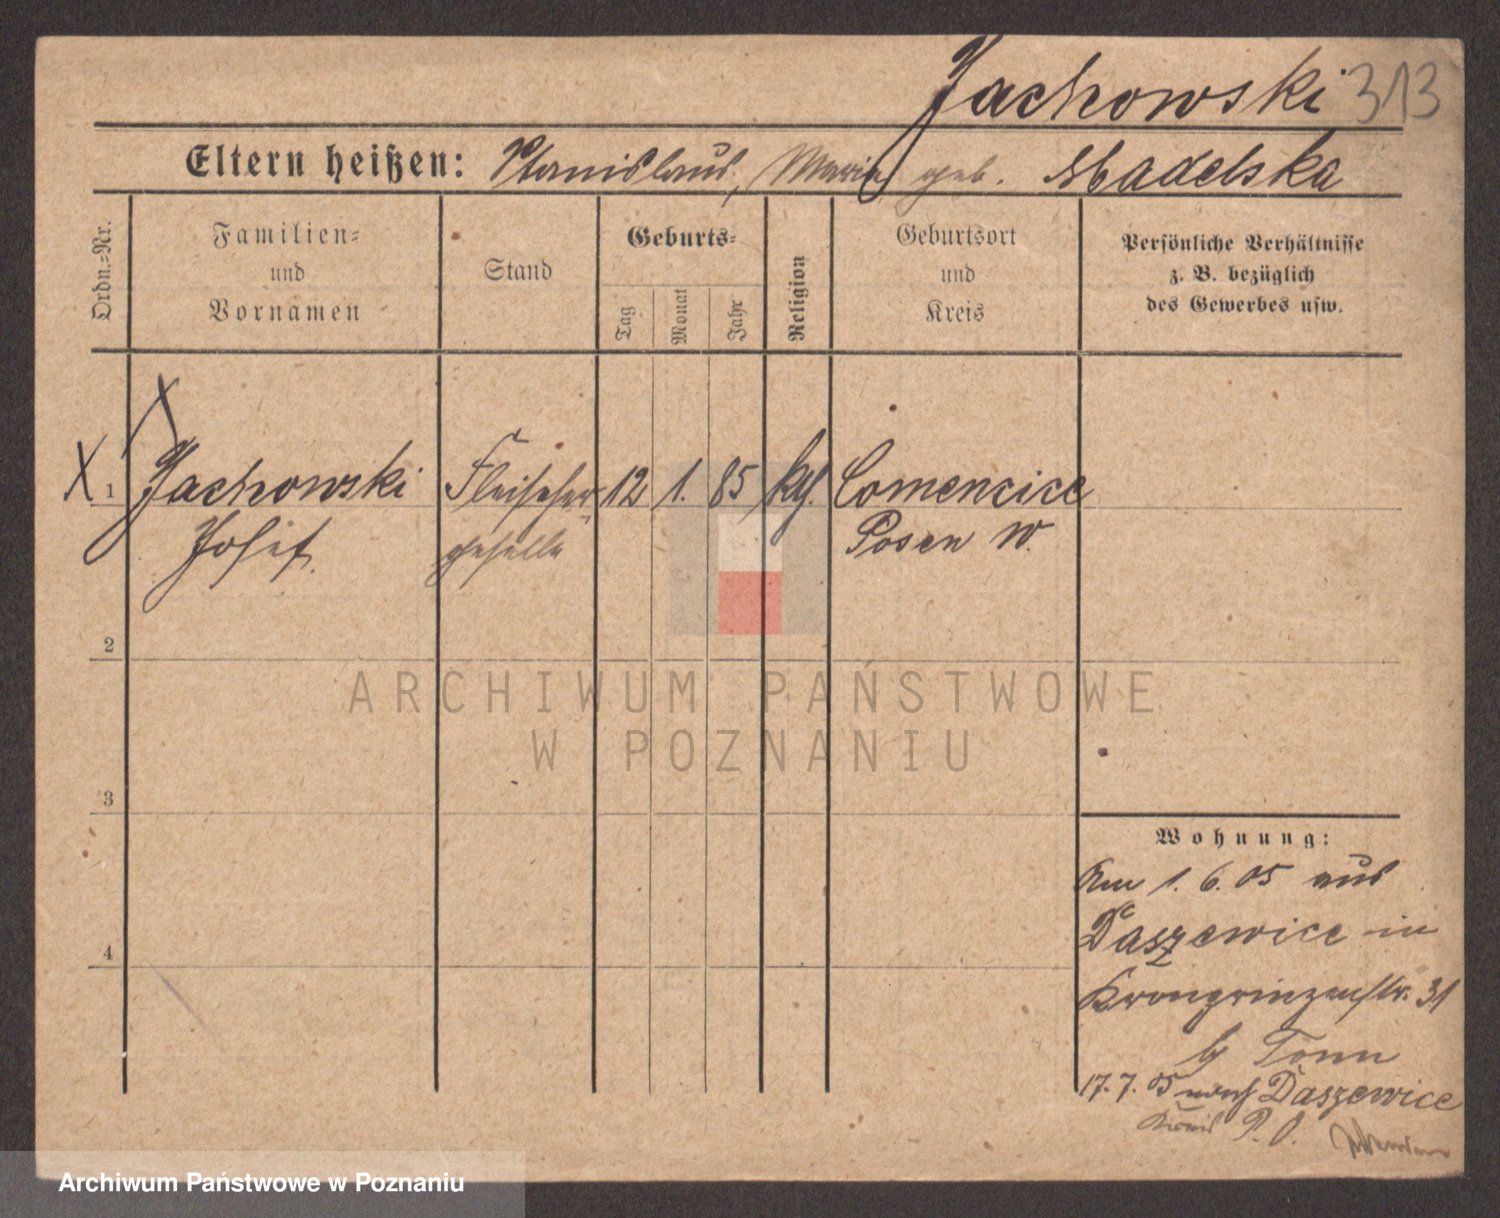 Jachowski 313
Eltern heißen: Stanislaus, Marie geb. Madelska
Ordn.-Nr.
Familien-
und
Vornamen
Stand
Geburts-
Tag
Monat
Jahr
Religion
Geburtsort
und
Kreis
Persönliche Verhältnisse
z. B. bezüglich
des Gewerbes usw.
1 Jachowski Fleischer 12 1. 85 kth. Lomencice
Josef geselle Posen W.
2
ARCHIWUM PAŃSTWOWE
W POZNANIU
3
Wohnung:
Am 1. 6. 05 aus
Daszewice in
4
Kronprinzenstr. 31
b/ Tonn
17. 7. 05 nach Daszewice
Kreis P. O.
Archiwum Państwowe w Poznaniu